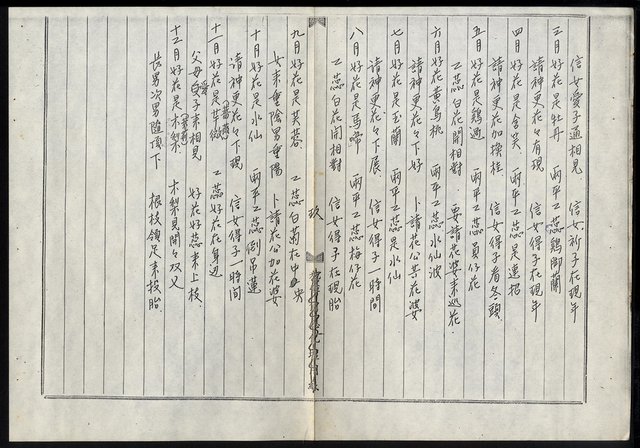 信女愛子通相見 信女祈子在現年
三月好花是牡丹 兩平乙蕊鷄脚蘭
請神更花々有現 信女得子在現年
四月好花是含笑 兩平乙蕊是連招
請神更花加換桂 信女得子看冬頭
五月好花是鷄過 兩平乙蕊員仔花
乙蕊白花開相對 要請花婆來巡花
六月好花黃烏桃 兩平乙蕊水仙波
請神更花々下好 卜請花公共花婆
七月好花是玉蘭 兩平乙蕊是水仙
請神更花々下辰 信女得子一時間
八月好花是馬啼 兩平乙蕊梅仔花
乙蕊白花開相對 信女得子在現胎
玖
九月好花是芙蓉 乙蕊白菊在中央
女來重陰男重陽 卜請花公加花婆
十月好花是水仙 兩平乙蕊倒吊蓮
請神更花々下現 信女得子一時間
十一月好花是薔薇 乙蕊好花在身边
父母愛子來相見 好花好蕊來上枝
十二月好花是木梨 木梨見開々双叉
長男次男隨頂下 根枝領足來投胎